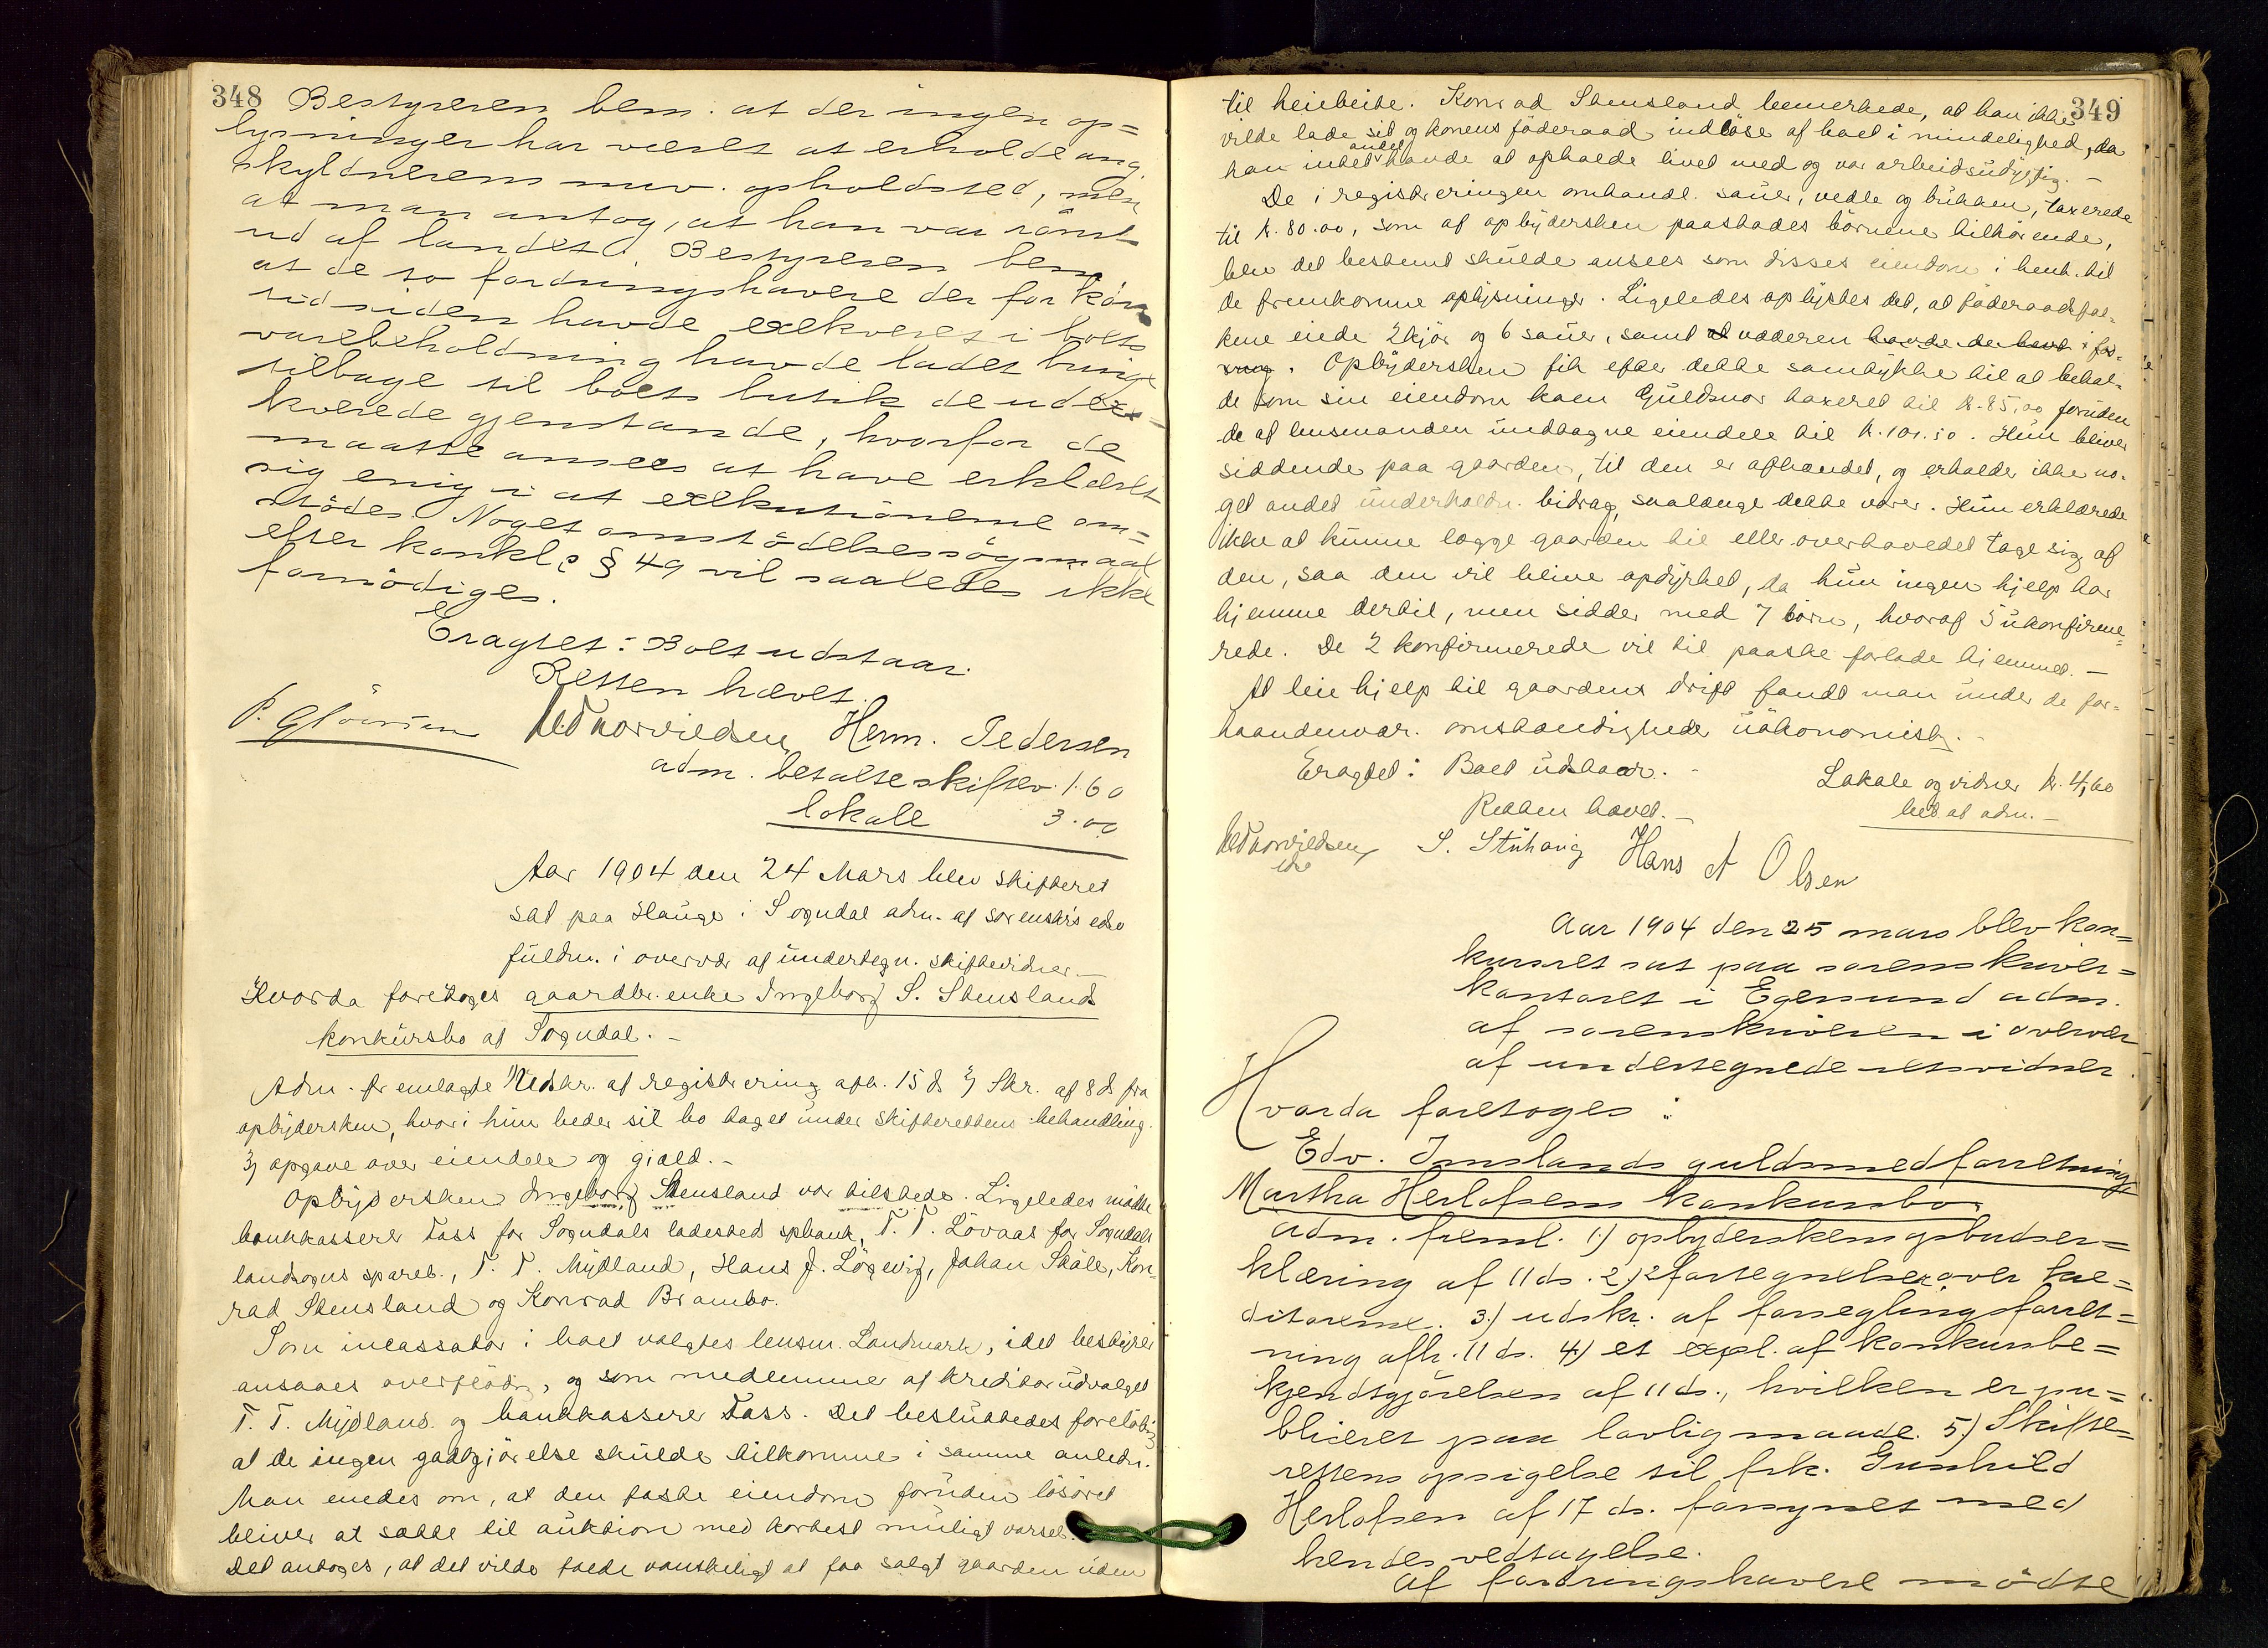 348 Bestyreren bem. at der ingen op=
lysninger har været at erholde ang.
skyldnerens nuv. opholdssted, men
at man antog, at han var rømt
ud af landet. Bestyreren bem.
at de to fordringshavere der for kort
tid siden havde exekveret i boets
varebeholdning havde ladet bringe
tilbage til boets butik de udex=
kverede gjenstande, hvorfor de
maatte ansees at have erklæret
sig enig i at exekutionerne om=
stødes. Noget omstødelsessøgsmaal
efter konkl. § 49 vil saaledes ikke
fornødiges.
Eragtet: Boet udstaar.
Retten hævet.
Herm. Pedersen
adm. betalte skiftev. 1.60
lokale 3.00
Aar 1904 den 24 Mars blev skifteret
sat paa Hauge i Sogndal adm. af sorenskr's edsv
fuldm. i overvær af undertegn. skiftevidner.—
Hvorda foretoges gaardbr. enke Ingeborg S. Stensland
konkursbo af Sogndal.—
Adm. fremlagte Udskr. af registrering afh. 15 ds 2) Skr. af 8 ds fra
opbydersken, hvori hun beder sit bo taget under skifterettens behandling.
3) opgave over eiendele og gjæld.—
Opbydersken Ingeborg Stensland var tilstede. Ligeledes mødte
bankkasserer Tass for Sogndals ladesteds spbank, T. T. Løvaas for Sogndals
landsogns spareb., T. T. Mydland, Hans J. Løgevig, Johan Skåle, Kon-
rad Stensland og Konrad Brambo.
Som incassator i boet valgtes lensm. Landmark, idet bestyrer
ansaaes overflødig, og som medlemmer af kreditorudvalget
T. T. Mydland og bankkasserer Tass. Det besluttedes foreløbig
at de ingen godtgjørelse skulde tilkomme i samme anledn.
Man enedes om, at den faste eiendom foruden løsøret
bliver at sætte til auktion med kortest muligt varsel.
Det antoges, at det vilde falde vanskeligt at faa solgt gaarden uden
349
til heiebeite. Konrad Stensland bemerkede, at han ikke
vilde lade sit og konens føderaad indløse af boet i mindelighed, da
han intet andet havde at opholde livet med og var arbeidsudygtig.—
De i registreringen omhandl. sauer, vedle og brikken, taxerede
til kr. 80.00, som af opbydersken paastodes børnene tilhørende,
blev det bestemt skulde ansees som disses eiendom i henh. til
de fremkomne oplysninger. Ligeledes oplystes det, at føderaadsfol-
kene eiede 2 kjør og 6 sauer, samt at væderen havde de havt i for-
. Opbydersken fik efter dette samtykke til at behol-
de som sin eiendom koen Guldmor taxeret til kr. 85,00 foruden
de af lensmanden undtagne eiendele til kr. 101.50. Hun bliver
siddende paa gaarden, til den er afhændet, og erholder ikke no-
get andet underholdn. bidrag, saalænge dette varer. Hun erklærede
ikke at kunne lægge gaarden til eller overhovedet tage sig af
den, saa den vil blive opdyrket, da hun ingen hjelp har
hjemme dertil, men sidder med 7 børn, hvoraf 5 ukonfirme-
rede. De 2 konfirmerede vil til paaske forlade hjemmet.—
At leie hjelp til gaardens drift fandt man under de for-
haandenvær. omstændigheder uøkonomisk.—
Eragtet: Boet udstaar.—
Lokale og vidner kr. 4,60
bet. af adm.—
Retten hævet.—
Hans A Olsen
Aar 1904 den 25 mars blev kon=
kursret sat paa sorenskriver=
kontoret i Egersund adm.
af sorenskriveren i overvær
af undertegnede retsvidner.
Hvorda foretoges:
Edv. Imslands guldsmedforretning
Martha Herlofsens konkursbo
Adm. freml. 1.) opbyderskens opbudser=
klæring af 11 ds. 2.) 2 fortegnelser over kre=
ditorerne. 3.) udskr. af forseglingsforret=
ning afh. 11 ds. 4.) et expl. af konkursbe=
kjendtgjørelsen af 11 ds., hvilken er pu=
bliceret paa lovlig maade. 5.) Skifte=
rettens opsigelse til frk. Gunhild
Herlofsen af 17 ds. forsynet med
hendes vedtagelse.
Af fordringshavere mødte